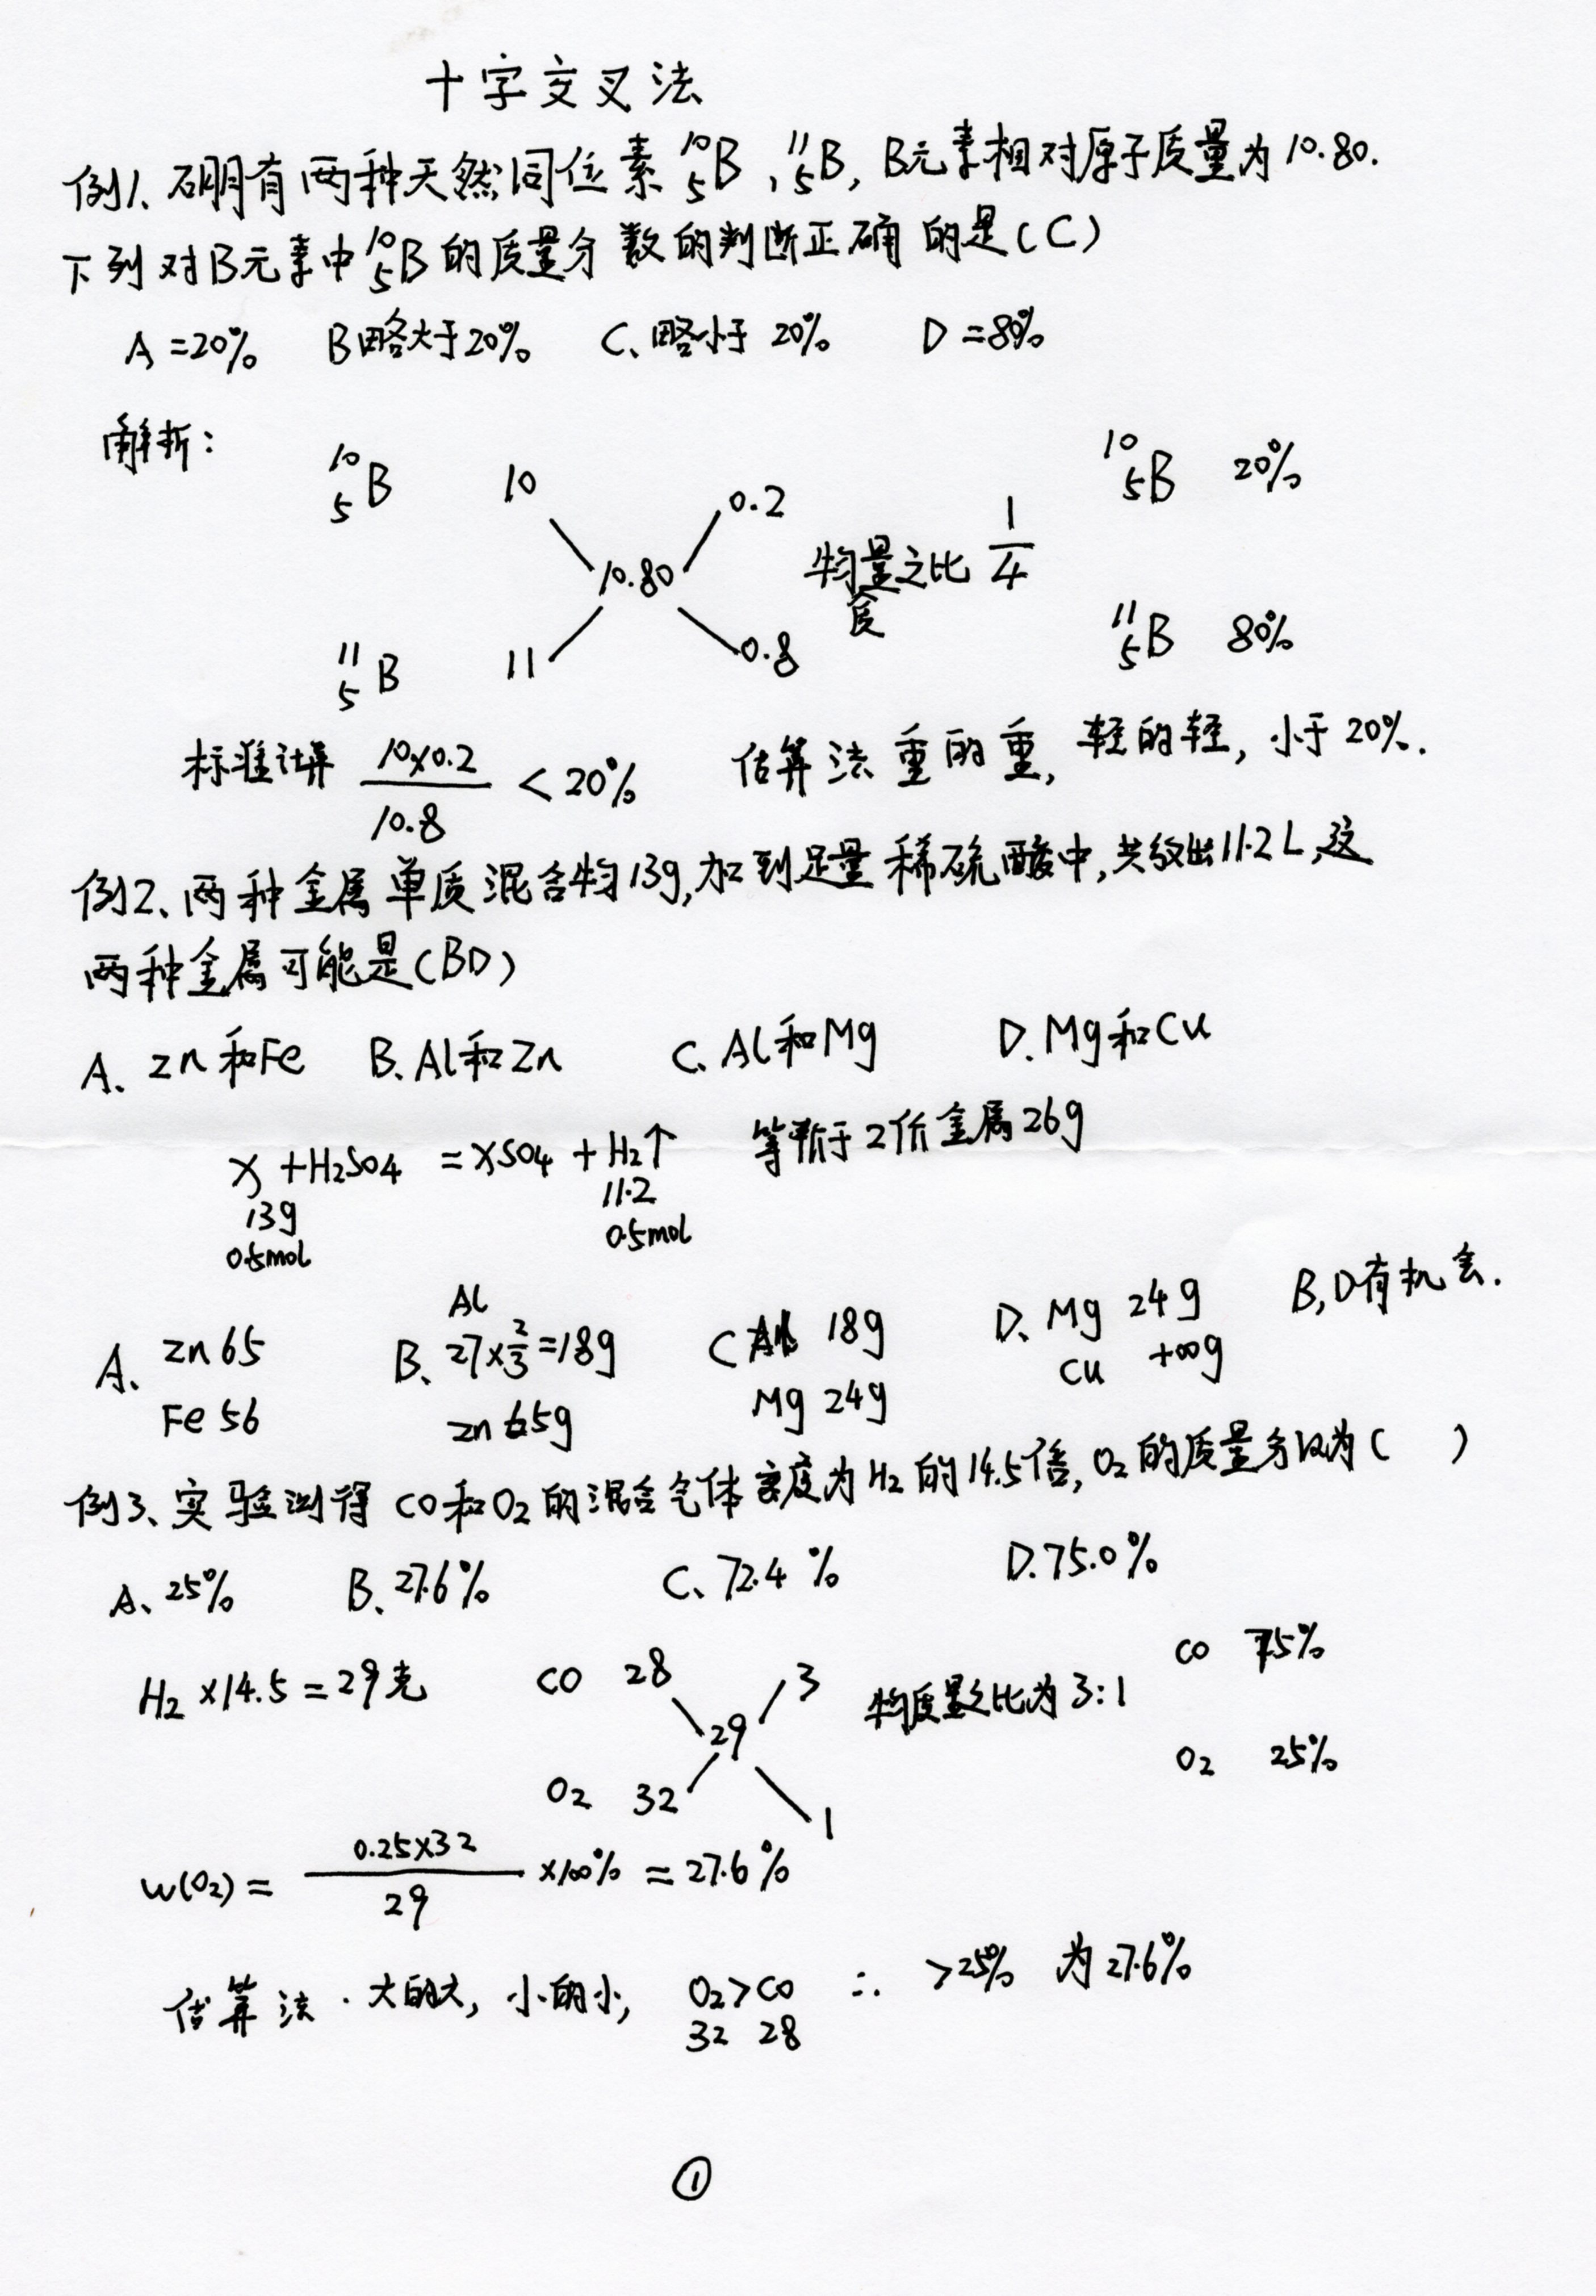 十字交叉法
例1、硼有两种天然同位素 ¹⁰₅B、¹¹₅B, B元素相对原子质量为10.80.
下列对B元素中 ¹⁰₅B 的质量分数的判断正确的是(C)
A =20% B 略大于20% C、略小于 20% D =80%
解折:
¹⁰₅B 10 0.2 ¹⁰₅B 20%
10.80 物质量之比 1/4
¹¹₅B 11 0.8 ¹¹₅B 80%
标准计算 10×0.2/10.8 <20% 估算法 重的重, 轻的轻, 小于20%.
例2、两种金属单质混合物13g,加到足量稀硫酸中,共放出11.2L,这
两种金属可能是(BD)
A、Zn和Fe B.Al和Zn C、Al和Mg D.Mg和Cu
X +H₂SO₄ =XSO₄ +H₂↑ 等新于2价金属26g
13g 11.2
0.5mol 0.5mol
A、Zn 65 B、Al 27×2/3=18g C Al 18g D、Mg 24g B,D有机会.
Fe 56 Zn 65g Mg 24g Cu +∞g
例3、实验测得 CO和O₂的混合气体密度为H₂的14.5倍, O₂的质量分数为( )
A、25% B、27.6% C、72.4% D.75.0%
H₂×14.5=29克 CO 28 3 CO 75%
29 物质量之比为3:1
O₂ 32 1 O₂ 25%
w(O₂)= 0.25×32/29 ×100% =27.6%
估算法·大的大, 小的小, O₂>CO ∴ >25% 为27.6%
32 28
①